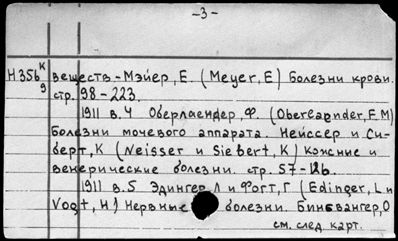 -3-
Н356 к/9 веществ - Мэйер, Е. (Meyer, E) Болезни крови.
стр. 98-223.
1911 в. 4 Оберлаендер, Ф. (Oberlaender, F M)
Болезни мочевого аппарата. Нейссер и Си-
берт, К (Neisser и Siebert, K) Кожные и
венерические болезни. стр. 57-126.
1911 в. 5 Эдингер, Л и Фогт, Г (Edinger, L и
Vogt, H) Нервные болезни. Бинсвангер, О
см. след. карт.